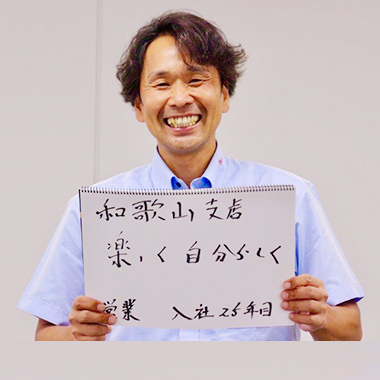 和歌山支店
楽しく 自分らしく
営業 入社25年目